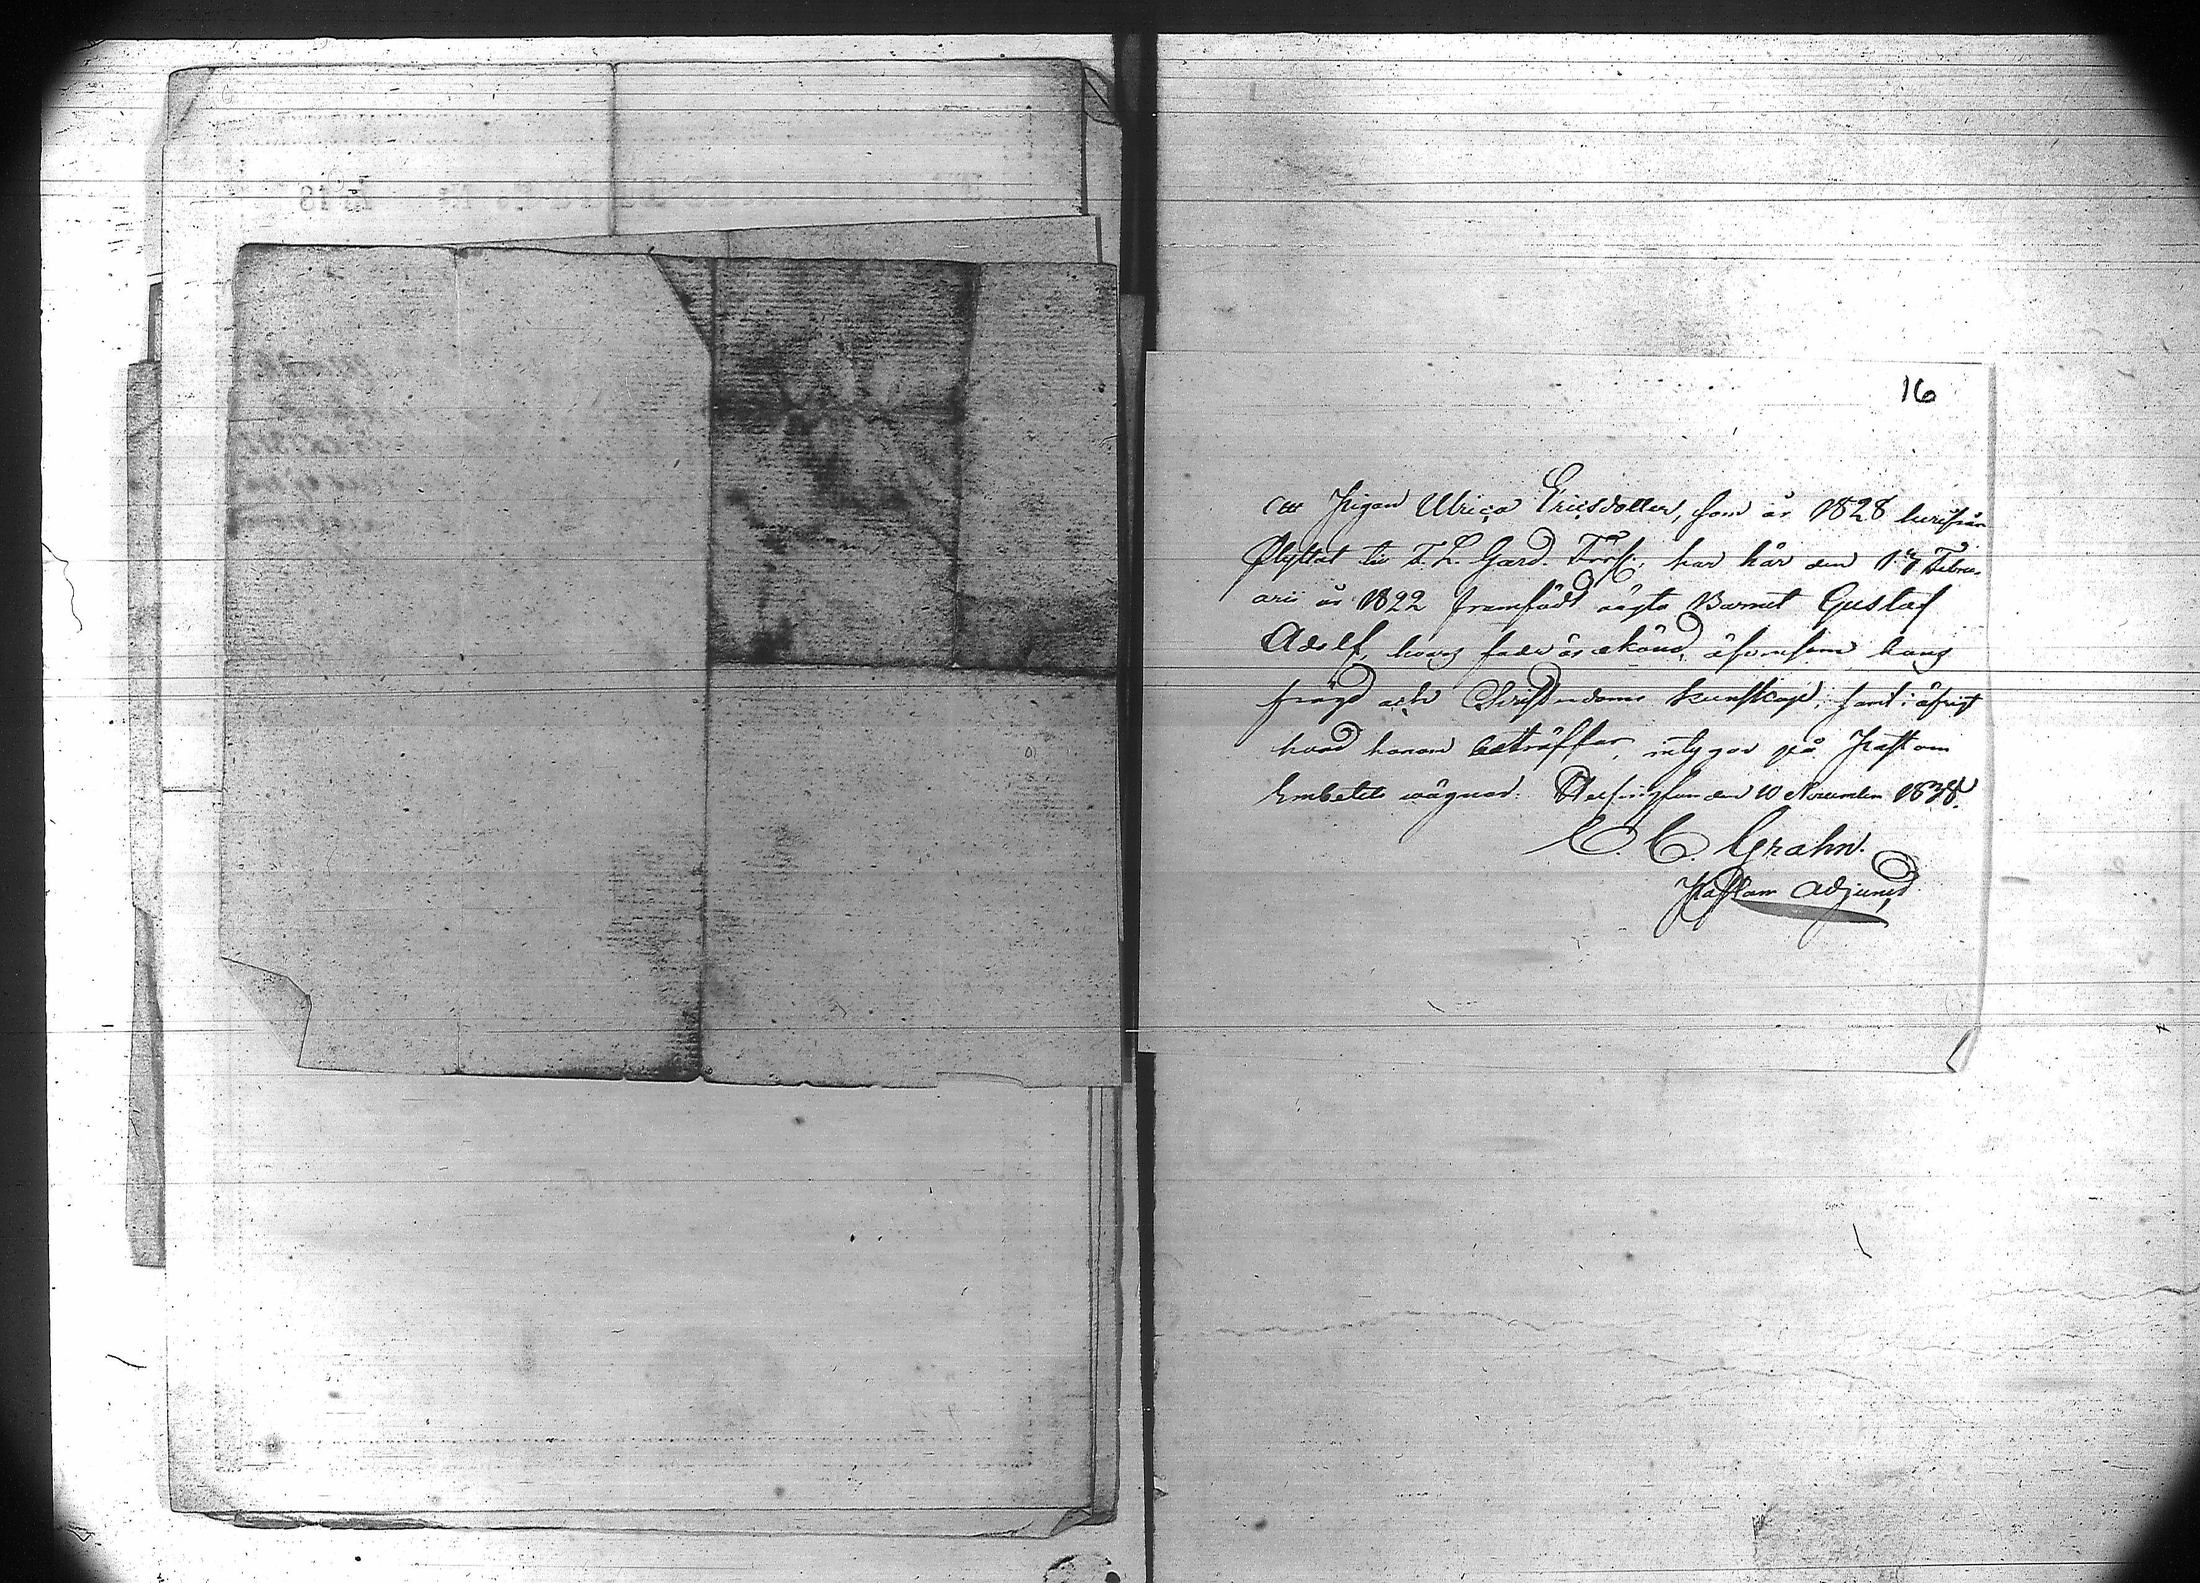 16
Att Pigan Ulrica Ericsdotter, som år 1828 härifrån
flyttat till F. L. Gard. Förs., har här den 17 Febru-
arii år 1822 framfödt oägta Barnet Gustaf
Adolf, hvars fader är okänd, äfvensom hans
frägd och Christendoms kunskap, samt i öfrigt
hvad honom beträffar, intygar på Pastors
Embetets vägnar. Helsingfors den 10 November 1838.
C. C. Grahn.
Pastors Adjunct.